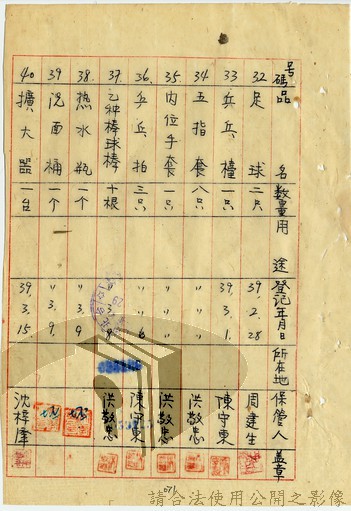 号碼 品名 数量 用途 登記年月日 所在地 保管人 盖章
32. 足球 二只 39. 2. 28 周建生
33. 兵兵檯 一只 39. 3. 1. 陳守東
34. 五指套 八只 〃 〃 〃 洪敬忠
35. 内位手套 一只 〃 〃 〃 洪敬忠
36. 乒乓拍 三只 〃 〃 6 陳守東
37. 乙种棒球棒 十根 洪敬忠
38. 热水瓶 一个 〃 3. 9
39. 洗面桶 一个 〃 3. 9
40. 擴大器 一台 39. 3. 15. 沈梓澤
請合法使用公開之影像